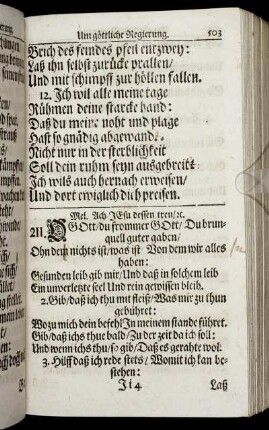 Um göttliche Regierung. 503
Brich des feindes pfeil entzwey:
Laß ihn selbst zurücke prallen/
Und mit schimpff zur höllen fallen.
12. Ich wil alle meine tage
Rühmen deine starcke hand:
Daß du meine noht und plage
Hast so gnädig abgewand.
Nicht nur in der sterblichkeit
Soll dein ruhm seyn ausgebreit:
Ich wils auch hernach erweisen/
Und dort ewiglich dich preisen.
Mel. Ach JEsu dessen treu/ꝛc.
211. O GOtt/du frommer GOtt/ Du brun-
quell guter gaben/
Ohn dem nichts ist/was ist Von dem wir alles
haben:
Gesunden leib gib mir/ Und daß in solchem leib
Ein unverletzte seel Und rein gewissen bleib.
2. Gib/daß ich thu mit fleiß/Was mir zu thun
gebühret:
Wozu mich dein befehl In meinem stande führet.
Gib/daß ichs thue bald/ Zu der zeit da ich soll:
Und wenn ichs thu/so gib/ Daß es gerahte wol.
3. Hilff daß ich rede stets/ Womit ich kan be-
stehen:
Ji 4 Laß